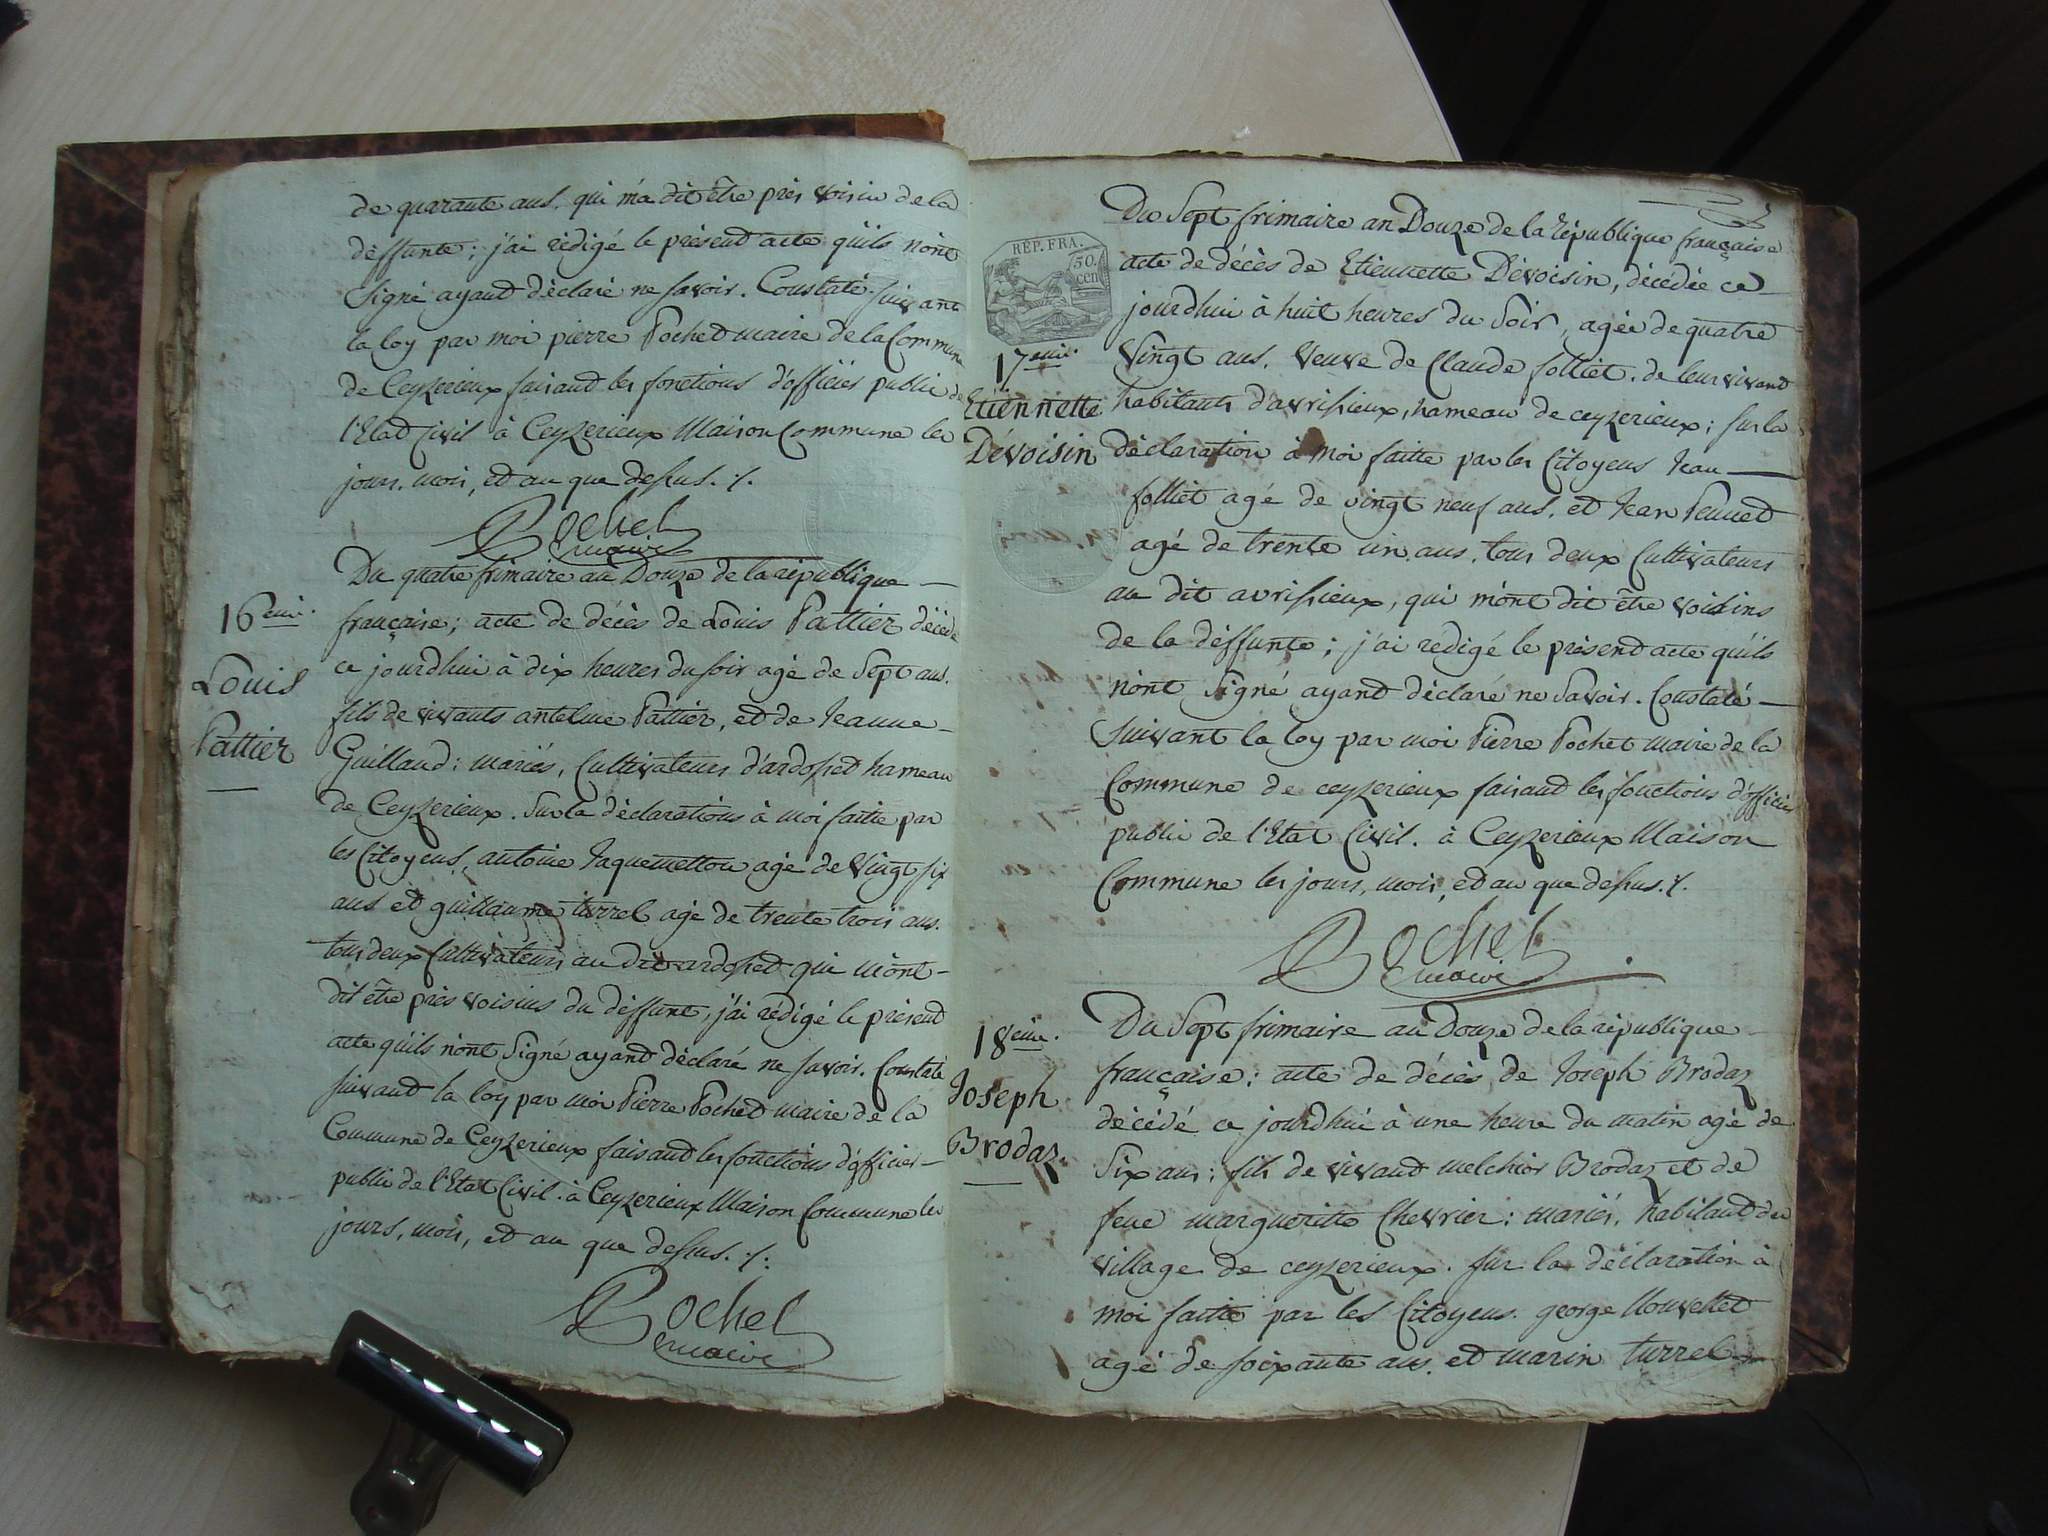 de quarante ans. qui m'a dit être près voisin de la
deffunte ; j'ai rédigé le présent acte qu'ils n'ont
Signé ayant déclaré ne savoir. Constaté suivant
la loy par moi pierre Pochet maire de la Commune
de Ceyzerieux faisand les fonctions d'officiés public de
l'Etat Civil à Ceyzerieux Maison Commune les
jours. mois, et an que dessus. ./.
Pochet
maire
16eme.
Louis
Pattier
Du quatre frimaire an Douze de la république
française ; acte de décès de Louis Pattier décédé
ce jourdhui à dix heures du soir agé de Sept ans.
fils de vivants antelme Pattier, et de Jeanne
Guilland : mariés, Cultivateurs d'ardosset hameau
de Ceyzerieux. Sur la déclarations à moi faitte par
les Citoyens, antoine Jaquemetton agé de Vingt six
ans et guillaume turrel agé de trente trois ans.
tous deux Cultivateurs au dit ardosset qui m'ont
dit être près voisins du deffunt, j'ai rédigé le présent
acte qu'ils n'ont Signé ayant déclaré ne savoir. Constaté
suivant la loy par moi Pierre Pochet maire de la
Commune de Ceyzerieux faisand les fonctions d'officier
public de l'Etat Civil. à Ceyzerieux Maison Commune les
jours, mois, et an que dessus. ./.
Pochet
maire
REP. FRA.
50.
cen
17eme.
Etiennette
Dévoisin
Du Sept frimaire an Douze de la République française
acte de décès de Etiennette Dévoisin, décédée ce
jourdhui à huit heures du Soir, agée de quatre
Vingt ans. Veuve de Claude folliet. de leur vivant
habitants d'avrissieux, hameau de ceyzerieux ; sur la
déclaration à moi faitte par les Citoyens Jean
folliet agé de vingt neuf ans. et Jean Pennet
agé de trente un ans. tous deux Cultivateurs
au dit avrissieux, qui m'ont dit être voisins
de la deffunte ; j'ai rédigé le présent acte qu'ils
n'ont Signé ayant déclaré ne Savoir. Constaté
Suivant la loy par moi Pierre Pochet maire de la
Commune de ceyzerieux faisand les fonctions d'officier
public de l'Etat Civil. à Ceyzerieux Maison
Commune les jours, mois, et an que dessus. ./.
Pochet
maire
18eme.
Joseph
Brodaz.
Du Sept frimaire an Douze de la république
française ; acte de décès de Joseph Brodaz
décédé ce jourdhui à une heure du matin agé de
Six ans ; fils de vivand melchior Brodaz et de
feue margueritte Chevrier : mariés, habitand du
village de ceyzerieux. Sur la déclaration à
moi faitte par les Citoyens. george
agé de soixante ans. et marin turrel